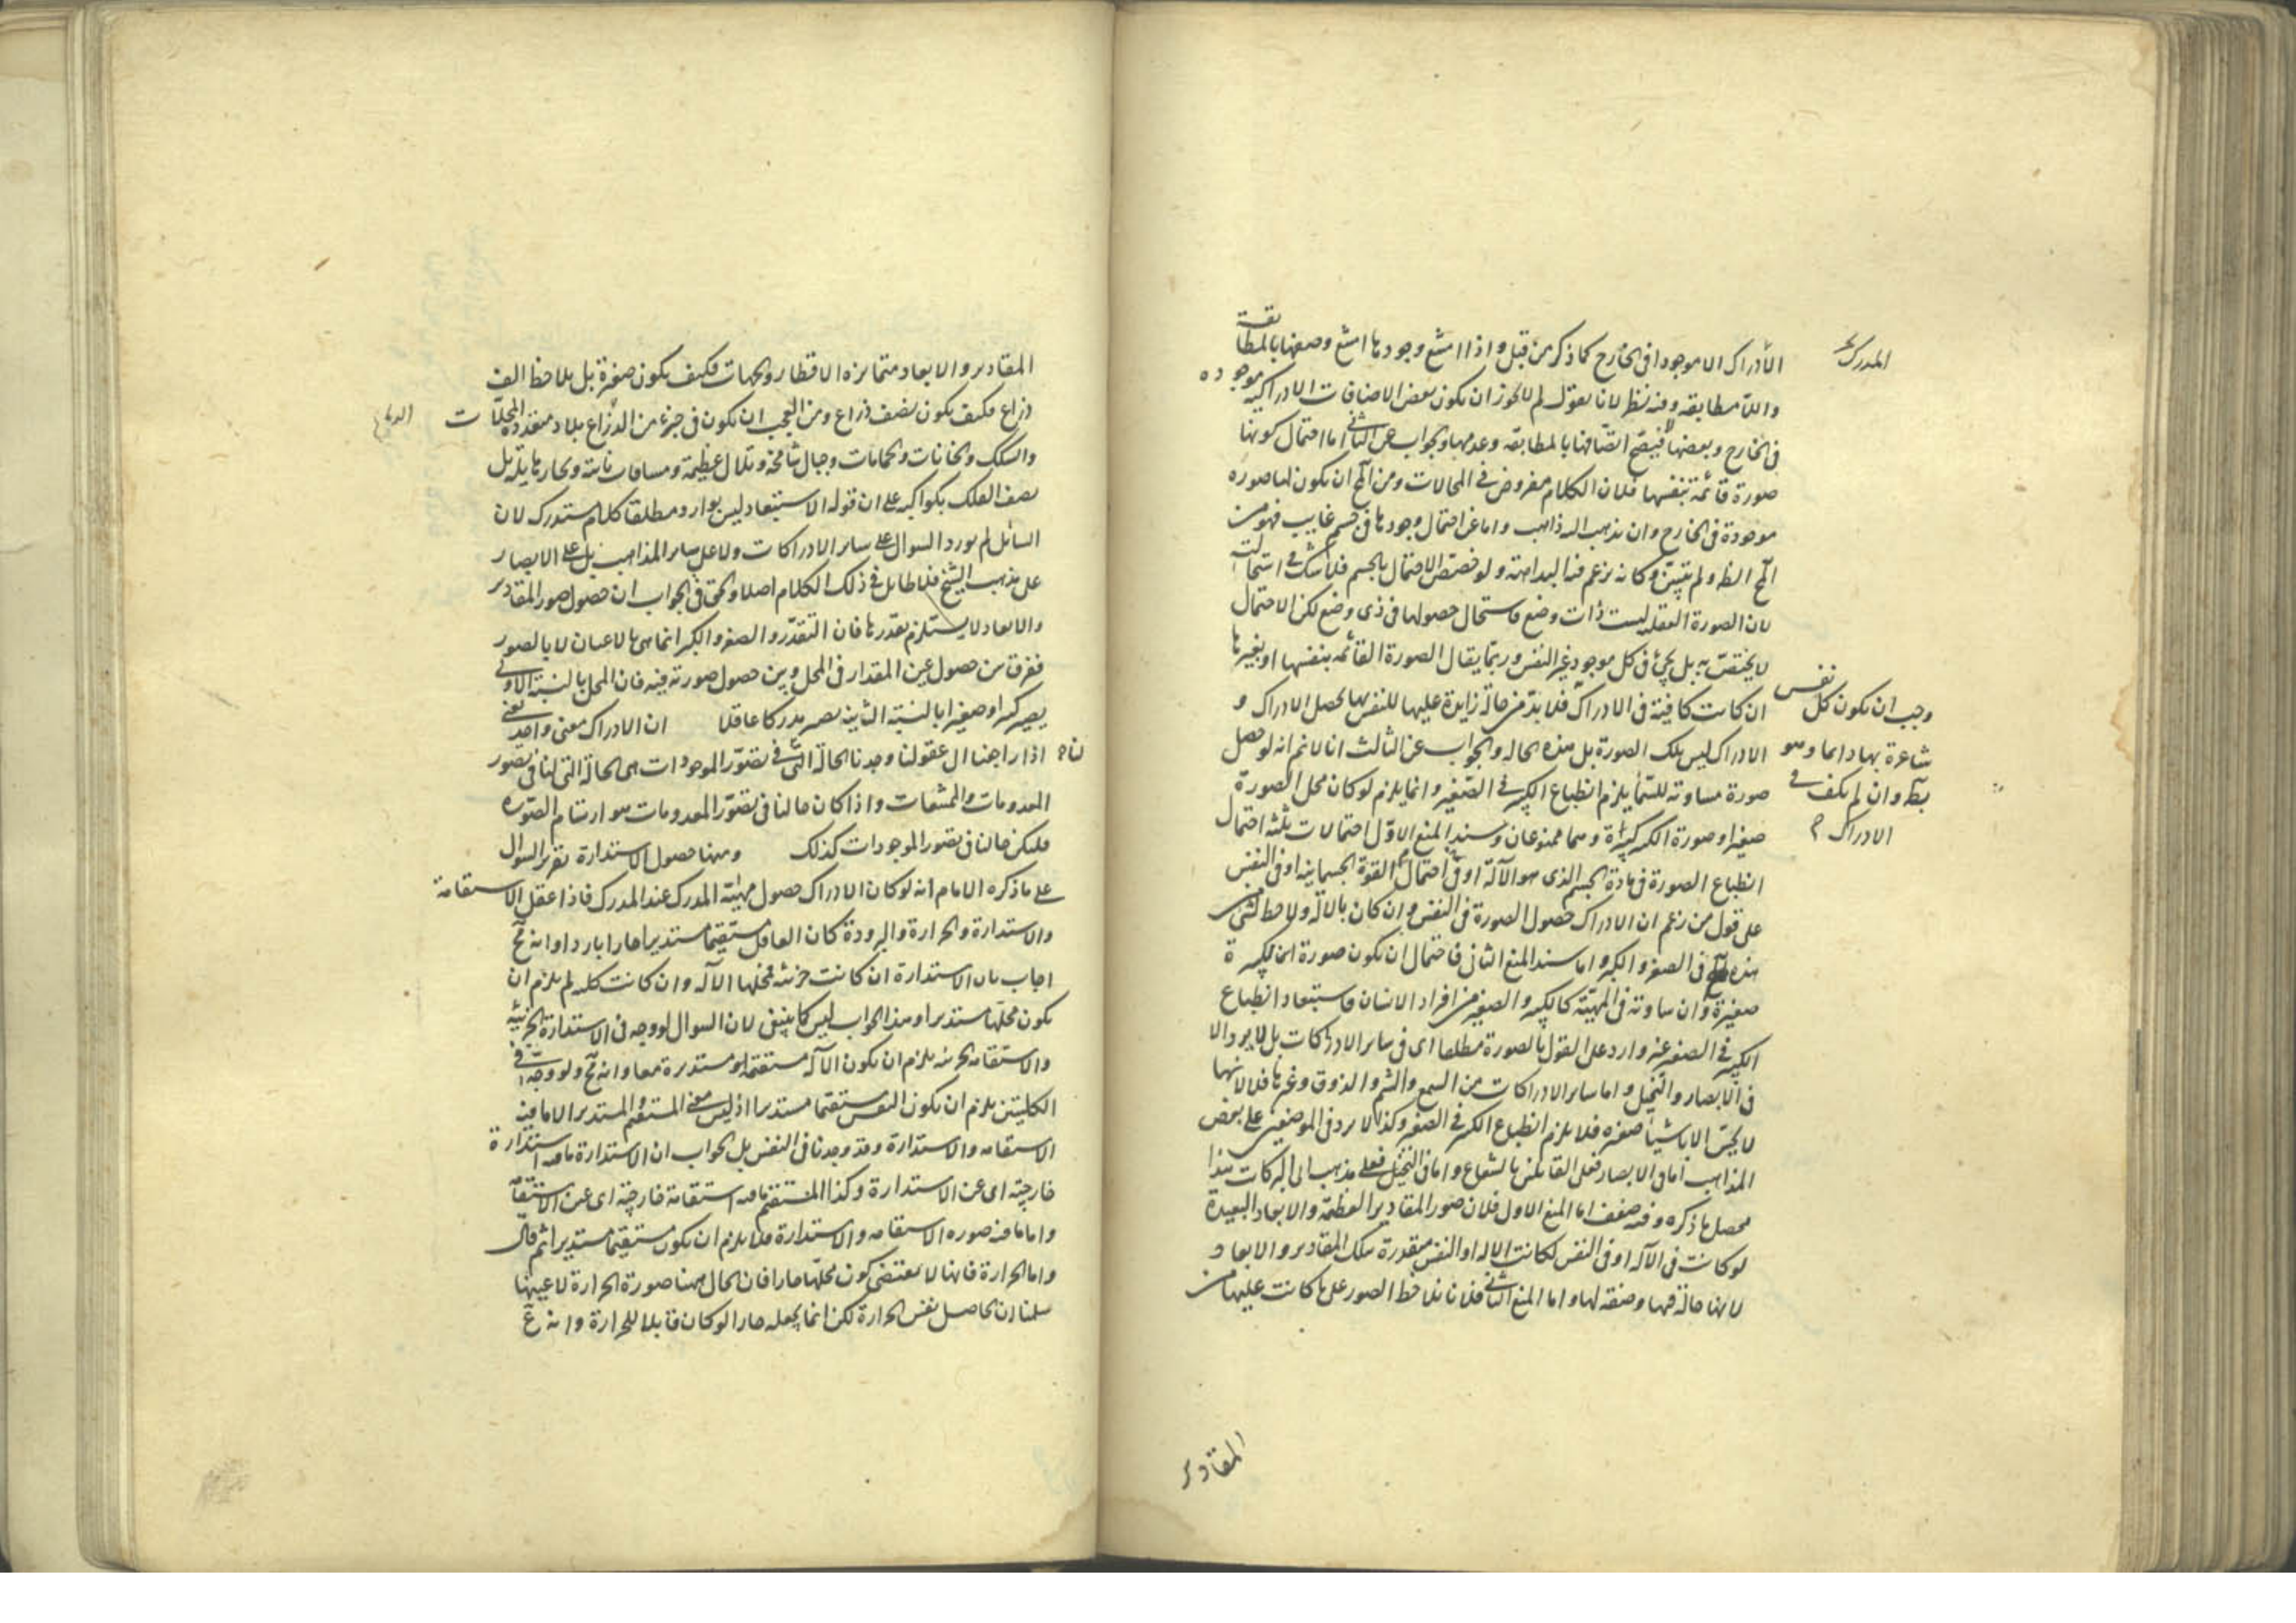 الادراك الا موجودا فى الخارج كما ذكر من قبل واذا امتنع وجودها امتنع وصفها بالمطابقة
واللا مطابقه وفيه نظر لانا نقول لم لا يجوز ان يكون بعض الاضافات الادراكيه موجوده
فى الخارج وبعضها لا فيصح اتصافها بالمطابقه وعدمها والجواب عن الثانى اما احتمال كونها
صورة قائمة بنفسها فلان الكلام مفروض فى المحالات ومن المح ان يكون لها صوره
موجودة فى الخارج وان يذهب اليه ذاهب واما عن احتمال وجودها فى جسم غايب فهو من
المح الظ ولم يتبين وكانه يزعم فيه البداهة ولو خصص الاحتمال بالجسم فلا شك فى استحالته
لان الصورة العقليه ليست ذات وضع فاستحال حصولها فى ذى وضع لكن الاحتمال
لا يختص به بل يجئ فى كل موجود غير النفس وربما يقال الصورة القائمه بنفسها او بغيرها
ان كانت كافية فى الادراك فلا بد من حالة زايدة عليها للنفس بها يحصل الادراك و
الادراك ليس تلك الصورة بل هذه الحاله والجواب عن الثالث انا لا نم انه لو حصل
صورة مساوته للسماء يلزم انطباع الكبير فى الصغير وانما يلزم لو كان محل الصورة
صغيرا وصورة الكبير كبيرة وهما ممنوعان وسند المنع الاول احتمالات ثلثه احتمال
انطباع الصورة فى مادة الجسم الذى هو الآلة او فى احتمال القوة الجسمانيه او فى النفس
على قول من زعم ان الادراك حصول الصورة فى النفس وان كان بالآلة ولا حظ لشئ من
هذه فى الصغر والكبر واما سند المنع الثانى فاحتمال ان يكون صورة الكبيرة
صغيرة وان ساوته فى المهية كالكبير والصغير من افراد الانسان فاستبعاد انطباع
الكبير فى الصغير غير وارد على القول بالصورة مطلقا اى فى ساير الادراكات بل لا يرد الا
فى الابصار والتخيل واما ساير الادراكات من السمع والشم والذوق وغيرها فلا لانها
لا يحس الا باشيأ صغيره فلا يلزم انطباع الكبير فى الصغير وكذا لا يرد فى الموضعين على بعض
المذاهب اما فى الابصار فعلى القائلين بالشعاع واما فى التخيل فعلى مذهب ابى البركات هذا
محصل ما ذكره وفيه ضعف اما المنع الاول فلان صور المقادير العظيمة والابعاد البعيدة
لو كانت فى الآله او فى النفس لكانت الاله او النفس متقدرة بتلك المقادير والابعاد
لانها حالة فيها وصفة لها واما المنع الثانى فلانا نلاحظ الصور على ما كانت عليها من
المدرك
وجب ان يكون كل نفس
شاعرة بها دايما وهو
بط وان لم يكف فى
الادراك
المقادير
المقادير والابعاد متمايزه الاقطار والجهات فكيف يكون صغيرة بل يلاحظ الف
ذراع فكيف يكون نصف ذراع ومن العجب ان يكون فى جزء من الذراع بلاد متعدده المحلات
والسكك والخانات والحمامات وجبال شامخة وتلال عظيمة ومسافات وبحار هايلة بل
نصف الفلك بكواكبه على ان قوله الاستبعاد ليس بوارد مطلقا كلام مستدرك لان
السائل لم يورد السوال على ساير الادراكات ولا على ساير المذاهب بل على الابصار
على مذهب الشيخ فلا طايل فى ذلك الكلام اصلا والحق فى الجواب ان حصول صور المقادير
والابعاد لا يستلزم تقدرها فان التقدر والصغر والكبر انما هى بالاعيان لا بالصور
ففرق بين حصول عين المقدار فى المحل وبين حصول صورته فيه فان المحل بالنسبة الاولى
يصير كبيرا وصغيرا بالنسبة الثانية يصير مدركا عاقلا ان الادراك معنى واحد يعنى
اذا راجعنا الى عقولنا وجدنا الحالة التى لنا فى تصور الموجودات هى الحالة التى لنا فى تصور
المعدومات والممتنعات واذا كان حالنا فى تصور المعدومات هو ارتسام الصوره
فليكن حالنا فى تصور الموجودات كذلك ومنها حصول الاستدارة تقرير السوال
على ما ذكره الامام انه لو كان الادراك حصول مهية المدرك عند المدرك فاذا عقل الاستقامة
والاستدارة والحرارة والبرودة كان العاقل مستقيما مستديرا حارا باردا وانه مح
اجاب بان الاستدارة ان كانت جزئيه فمحلها الآله وان كانت كليه لم يلزم ان
يكون محلها مستديرا وهذا الجواب ليس كما ينبغى لان السوال لو وجه فى الاستدارة الجزئية
والاستقامه الجزئيه يلزم ان يكون الآله مستقيمه ومستديرة معا وانه مح ولو وجه فى
الكليتين يلزم ان يكون النفس مستقيما مستديرا اذ ليس معنى المستقيم والمستدير الا ما فيه
الاستقامه والاستدارة وقد وجدنا فى النفس بل الجواب ان الاستدارة ما فيه استدارة
خارجية اى عين الاستدارة وكذا المستقيم ما فيه استقامة خارجية اى عين الاستقامة
واما ما فيه صوره الاستقامه والاستدارة فلا يلزم ان يكون مستقيما مستديرا ثم قال
واما الحرارة فانها لا يقتضى كون محلها حارا فان الحال ههنا صورة الحرارة لا عينها
سلمنا ان الحاصل نفس الحرارة لكن انما يجعله حارا لو كان قابلا للحرارة وانه مح